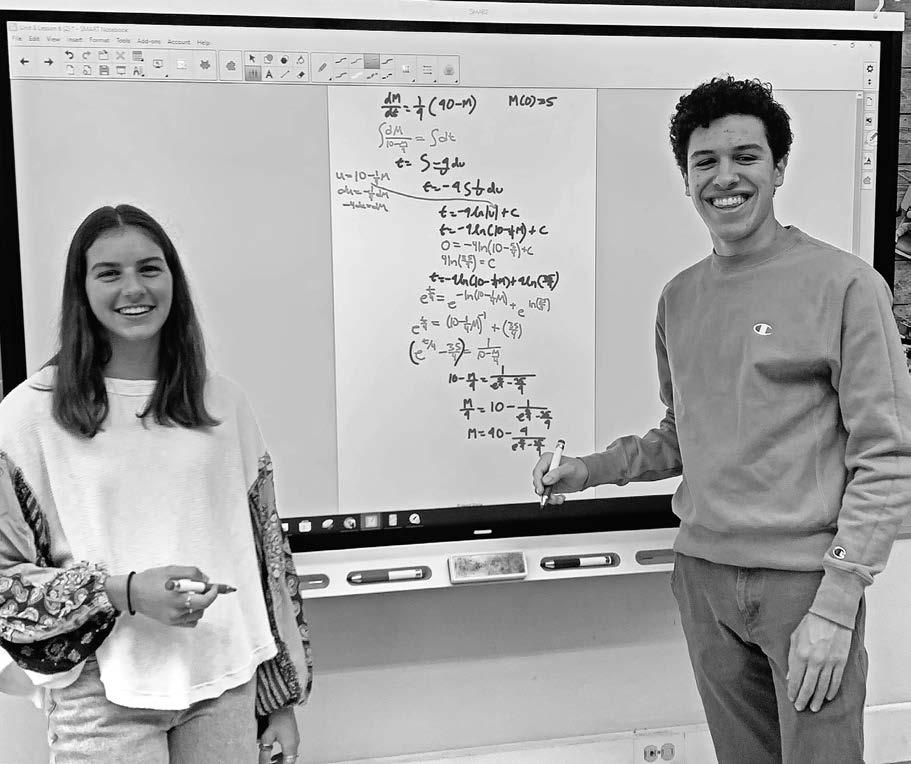 SMART
Unit 6 Lesson 6 (2)* - SMART Notebook
File Edit View Insert Format Tools Add-ons Account Help
dM/dt = 1/4 (40-M) M(0)=5
∫ dM/(10-M/4) = ∫dt
t = ∫-4/u du
u=10-1/4M
du=-1/4dM
-4du=dM
t=-4∫1/u du
t=-4ln|u|+c
t=-4ln(10-1/4M)+c
0=-4ln(10-5/4)+c
4ln(35/4)=c
t=-4ln(10-1/4M)+4ln(35/4)
e^(t/4) = e^(-ln(10-1/4M)) + e^(ln(35/4))
e^(t/4) = (10-1/4M)^-1 + (35/4)
(e^(t/4) - 35/4) = 1/(10-M/4)
10-M/4 = 1/(e^(t/4) - 35/4)
M/4 = 10 - 1/(e^(t/4) - 35/4)
M=40- 4/(e^(t/4) - 35/4)